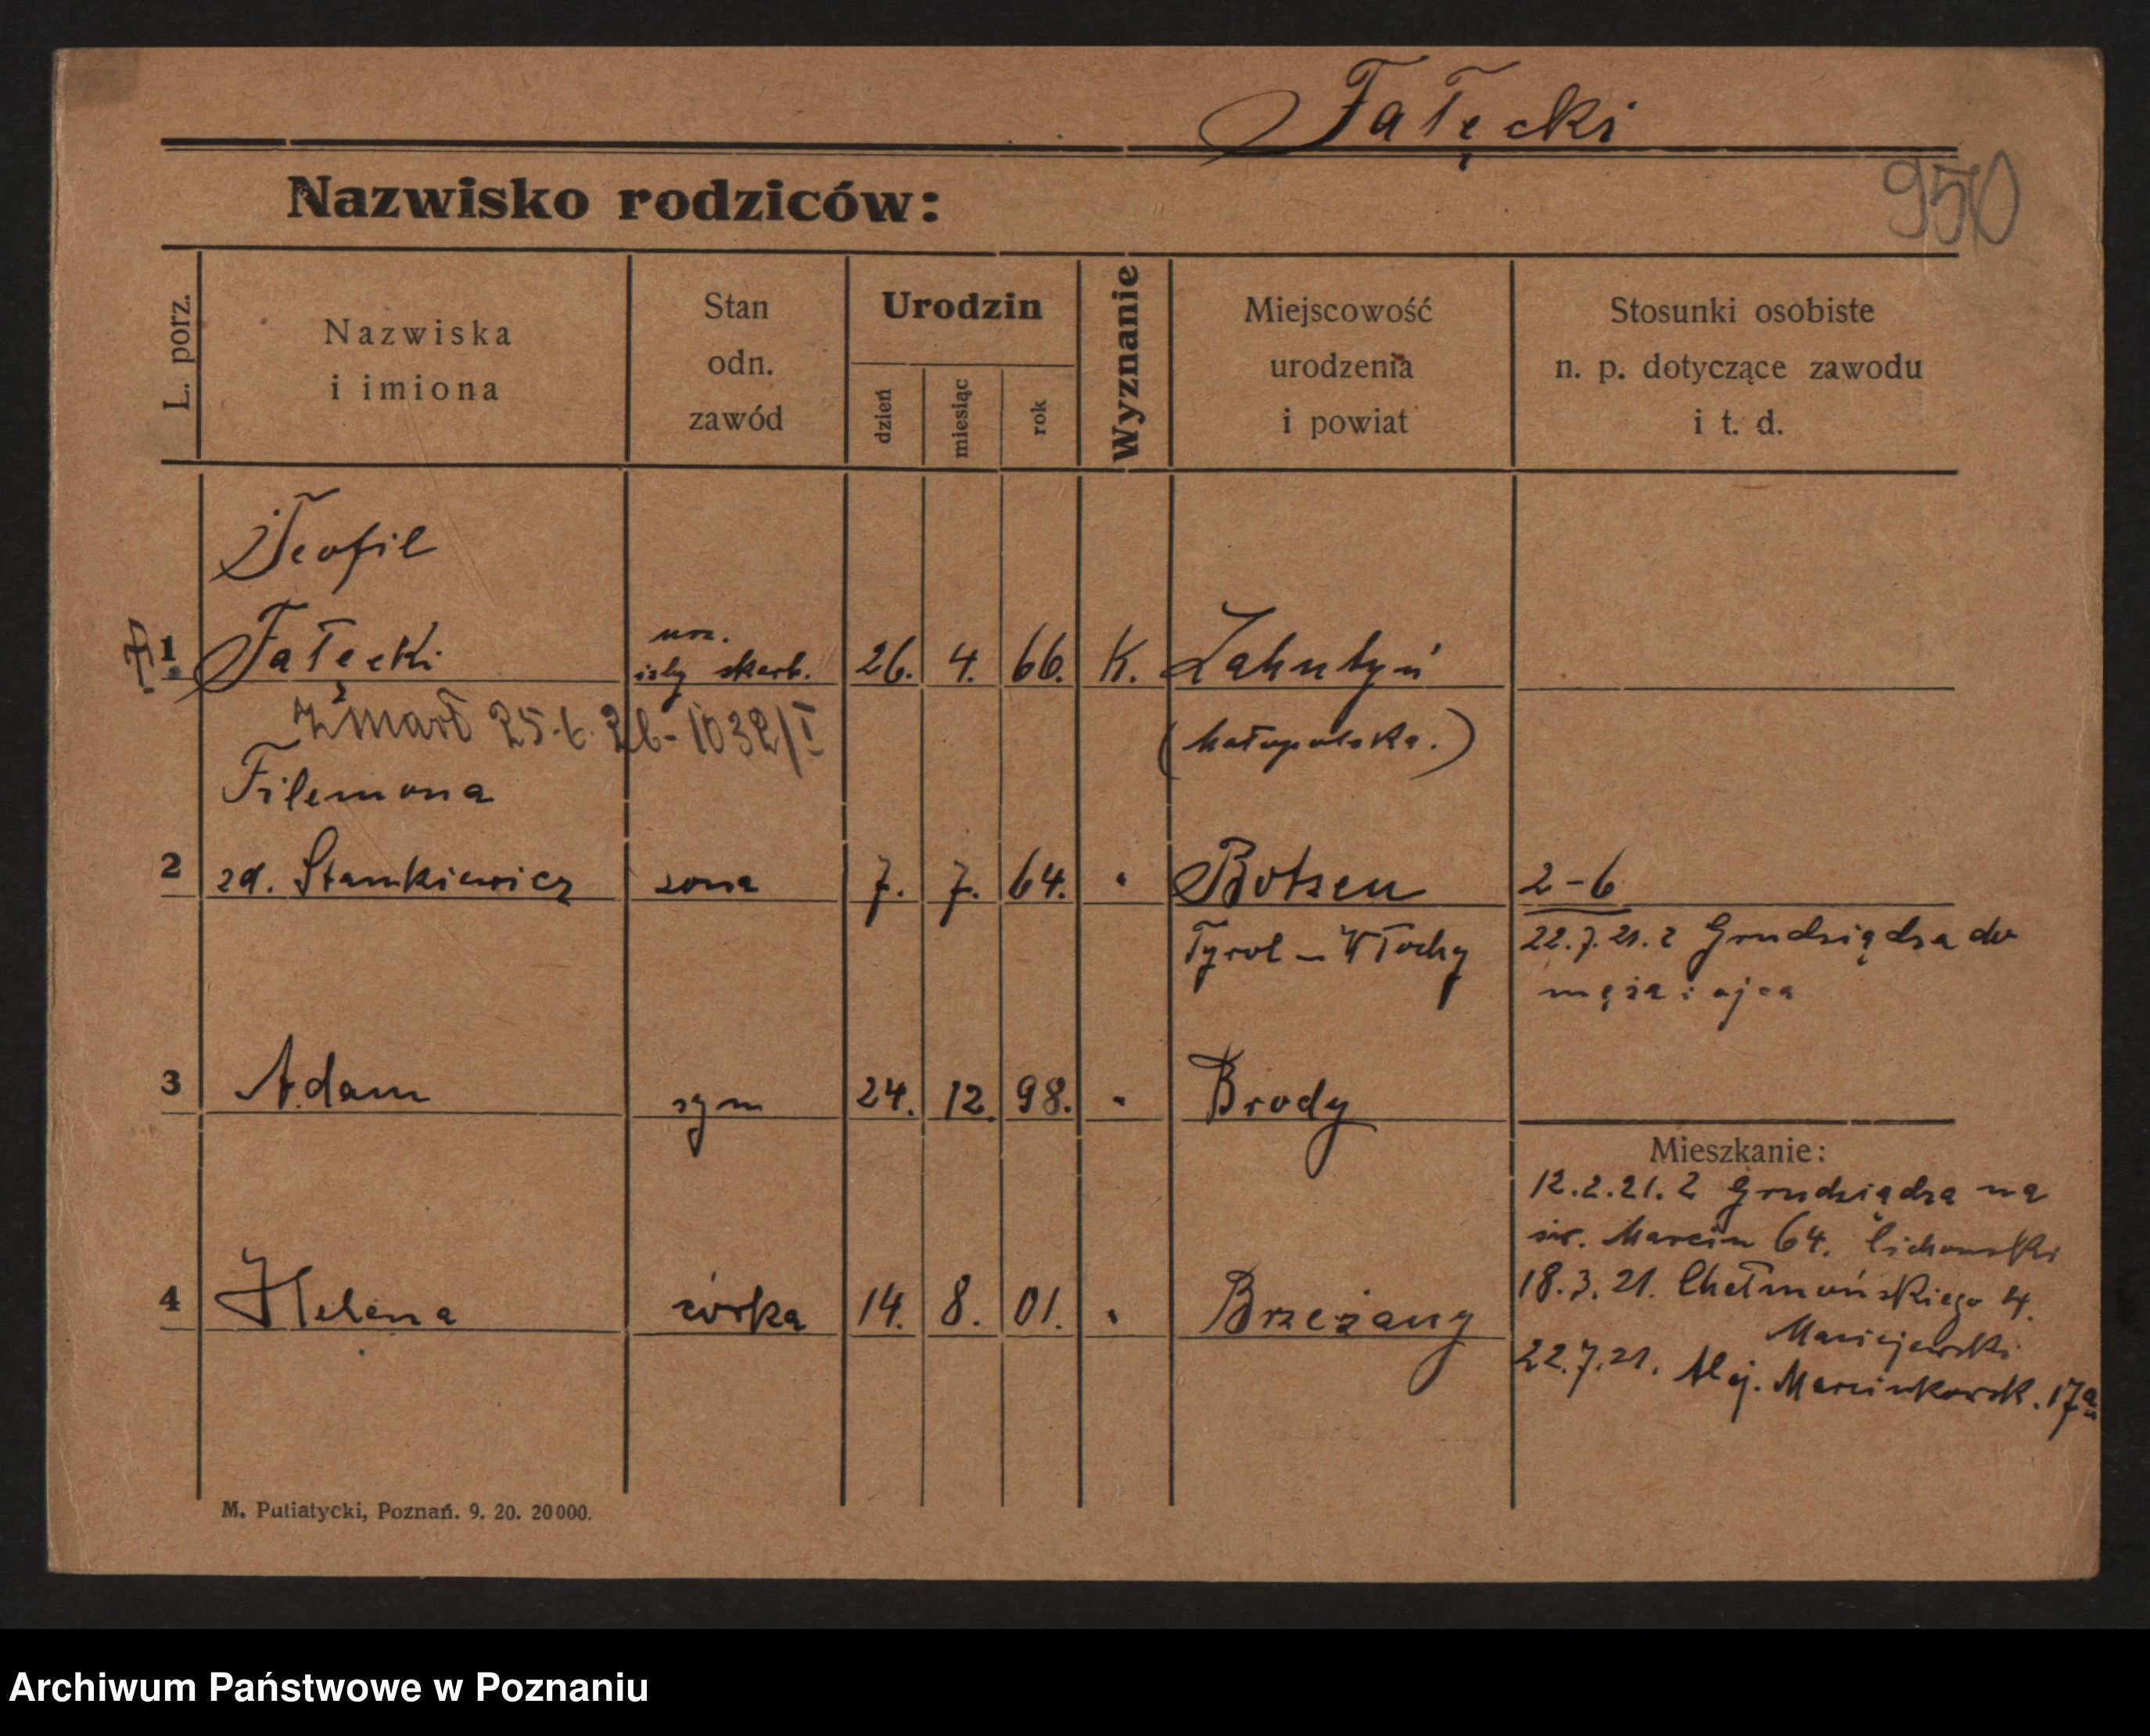 Fałęcki
Nazwisko rodziców:
950
L. porz.
Nazwiska
i imiona
Stan
odn.
zawód
Urodzin
dzień
miesiąc
rok
Wyznanie
Miejscowość
urodzenia
i powiat
Stosunki osobiste
n. p. dotyczące zawodu
i t. d.
Teofil
1 Fałęcki urz. izby skarb. 26. 4. 66. K. Zahutyń
zmarł 25.6.26 - 1032/I (Małopolska.)
Filemona
2 zd. Stankiewicz żona 7. 7. 64. " Botzen 2-6
Tyrol - Włochy 22.7.21. z Grudziądza do
męża i ojca
3 Adam syn 24. 12. 98. " Brody
Mieszkanie:
12.2.21. z Grudziądza na
św. Marcin 64. Cichowski
4 Helena córka 14. 8. 01. " Brzeżany
18.3.21. Chełmońskiego 4.
Maciejewski
22.7.21. Alej. Marcinkowsk. 17a
M. Putiatycki, Poznań. 9. 20. 20000.
Archiwum Państwowe w Poznaniu